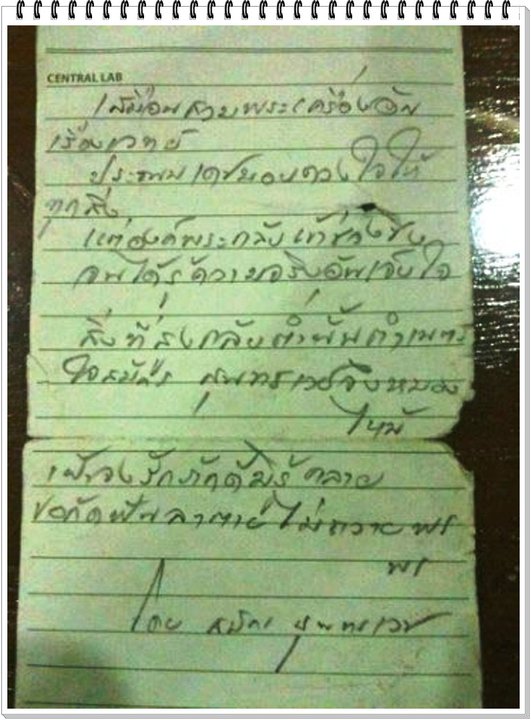 CENTRAL LAB
เสมือนสวมพระเครื่องอัน
เรืองเวทย์
ประนมเดชมอบดวงใจให้
ทุกสิ่ง
แต่องค์พระกลับ
จนได้รู้ความจริงอันเจ็บใจ
สิ่งที่ส่งกลับต่ำนั้นตำเนตร
ใจสมัคร สุนทรเวชจึงหมอง
ไหม้
เฝ้าจงรักภักดีมิรู้คลาย
ขอกัดฟันลาตายไม่ถวายพร
พร
โดย สมัคร สุนทรเวช